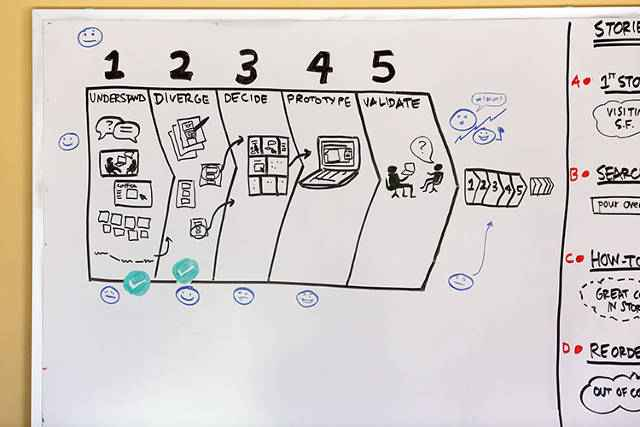 STORIE
1 2 3 4 5
UNDERSTAND DIVERGE DECIDE PROTOTYPE VALIDATE
?
?
COFFEE
1 2 3 4 5
A 1ST STO
VISITIN
S.F.
B SEARC
POUR OVE
C HOW-TO
GREAT C
IN STOR
D REORDE
OUT OF CO